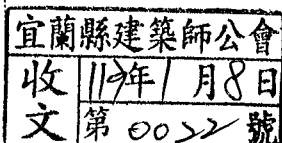 宜蘭縣建築師公會
收文
119年1月8日
第0022號